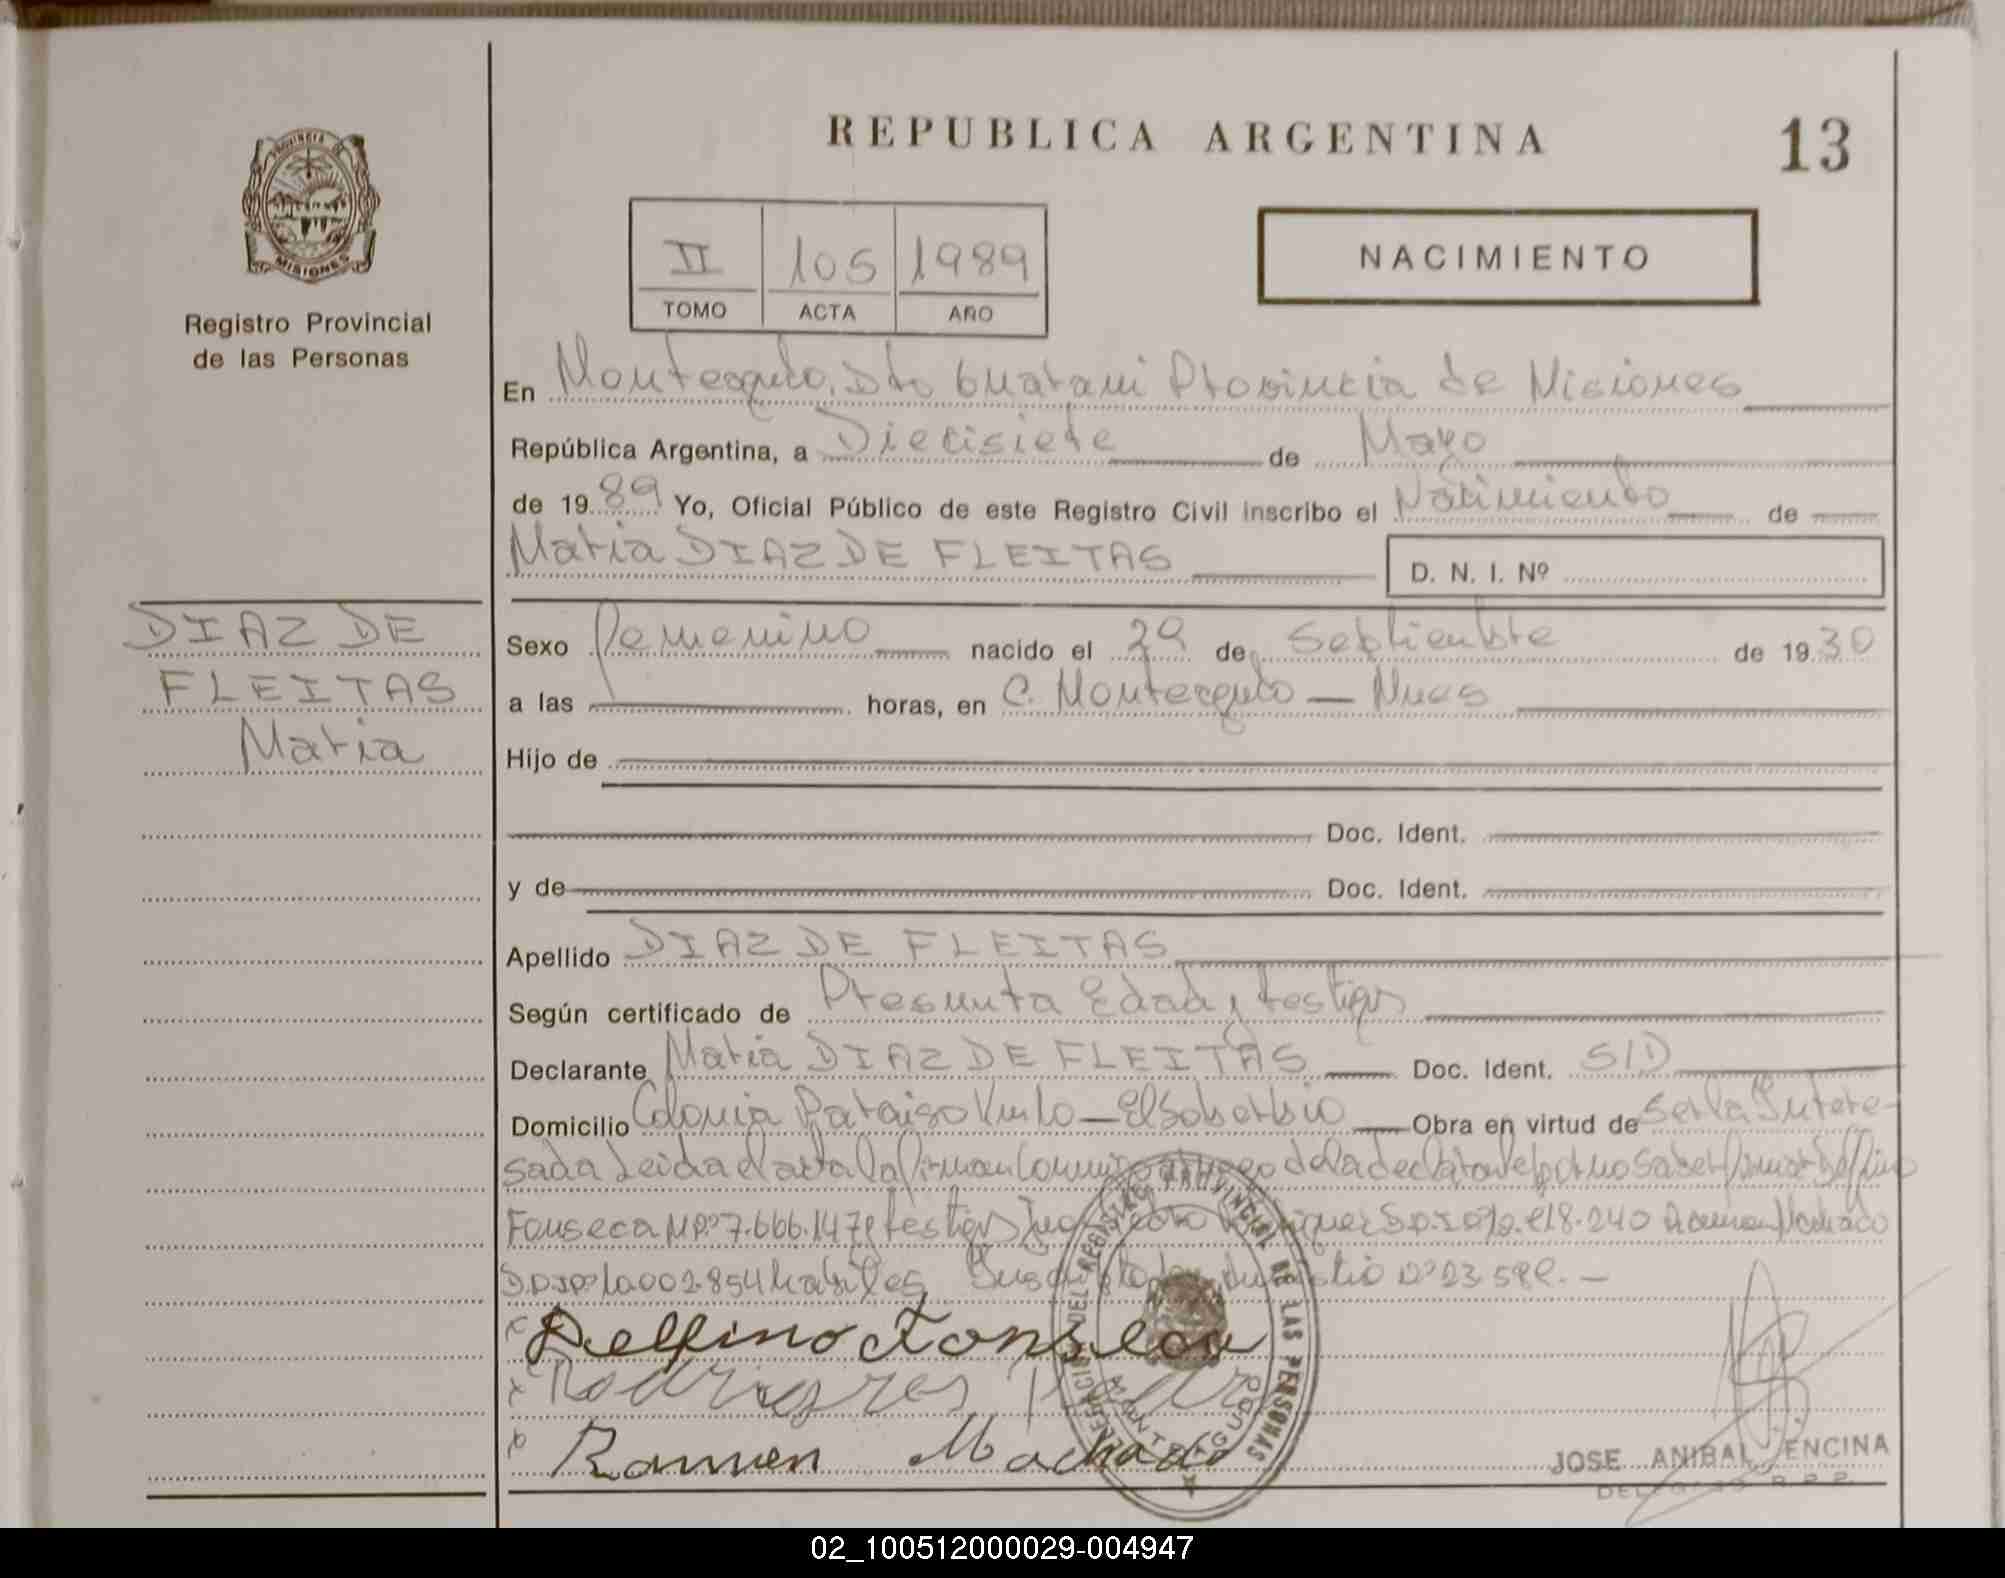 REPUBLICA ARGENTINA
13
PROVINCIA DE
MISIONES
Registro Provincial
de las Personas
II 105 1989
TOMO ACTA AÑO
NACIMIENTO
En Monteagudo, Dto Guarani Provincia de Misiones
República Argentina, a Diecisiete de Mayo
de 1989 Yo, Oficial Público de este Registro Civil inscribo el Nacimiento de
Maria DIAZ DE FLEITAS D. N. I. Nº
DIAZ DE
FLEITAS
Maria
Sexo Femenino nacido el 29 de Septiembre de 1930
a las horas, en C. Monteagudo — Mnes
Hijo de
Doc. Ident.
y de Doc. Ident.
Apellido DIAZ DE FLEITAS
Según certificado de Presunta Edad y testigos
Declarante Maria DIAZ DE FLEITAS Doc. Ident. S/D
Domicilio Colonia Paraiso — El Soberbio Obra en virtud de Ser la Intere-
sada Leida el acta la firman Conmigo a ruego de la declarante por no Saber firmar Delfino
Fonseca Nº 7.666.147 y testigos Ramon Machado
habiles
Delfino Fonseca
Rodrigres
Ramon Machado
DELEGACION DEL REGISTRO PROVINCIAL DE LAS PERSONAS
MONTEAGUDO
JOSE ANIBAL ENCINA
DELEGADO R.P.P.
02_100512000029-004947